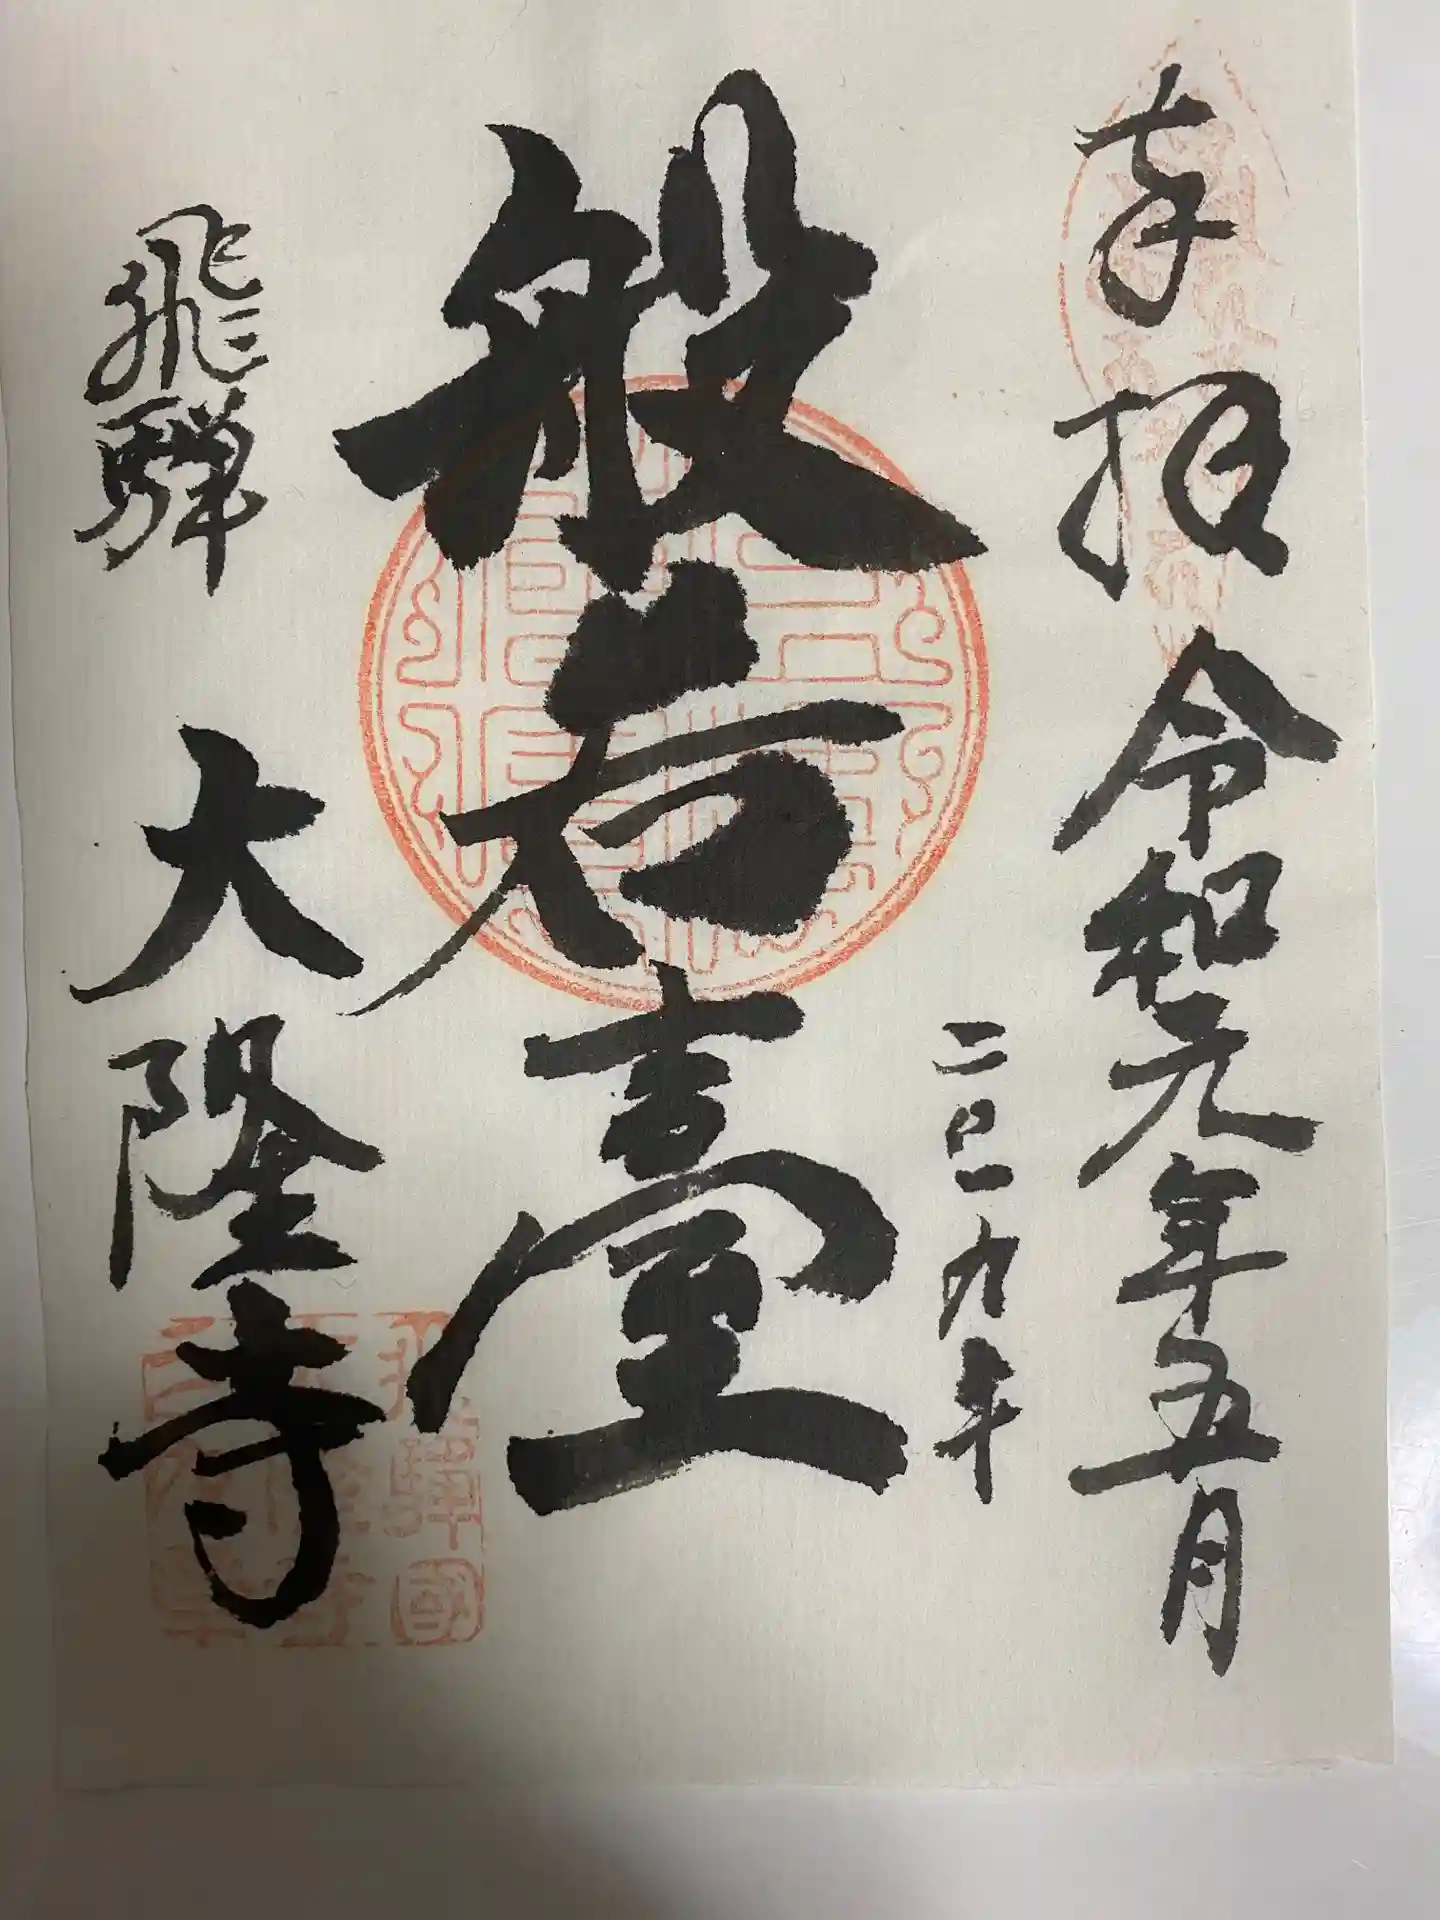 奉拝 令和元年五月
二〇一九年
般若臺
飛騨 大隆寺